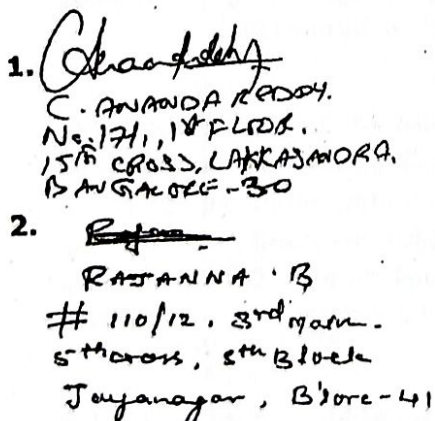 1.
C. ANANDA REDDY.
No. 171, 1st FLOOR.
15th CROSS, LAKKASANDRA.
BANGALORE - 30
2.
RAJANNA . B
# 110/12, 3rd main.
5th cross, 5th Block
Jayanagar, B'lore - 41